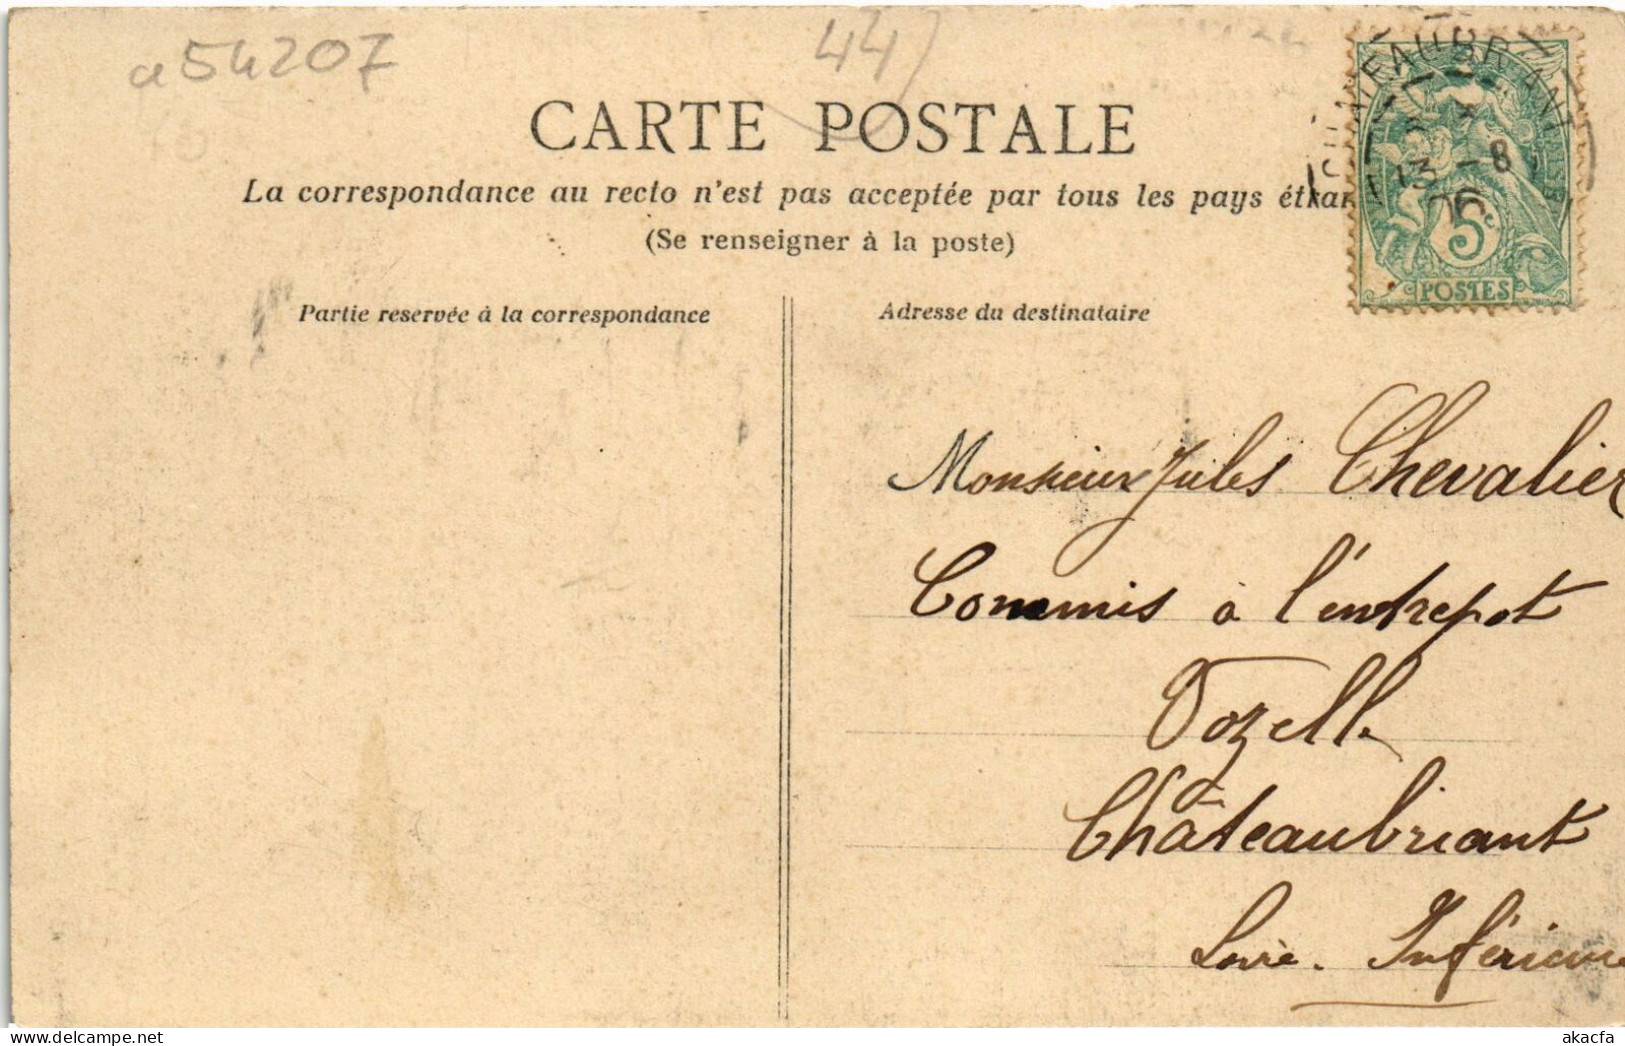 a54207
44
CARTE POSTALE
La correspondance au recto n'est pas acceptée par tous les pays étran
(Se renseigner à la poste)
CHATEAUBRIANT
13 -8
06
5c
POSTES
Partie reservée à la correspondance
Adresse du destinataire
Monsieur Jules Chevalier
Commis à l'entrepot
Vozelle
Châteaubriant
Loire. Inférieure
akacfa